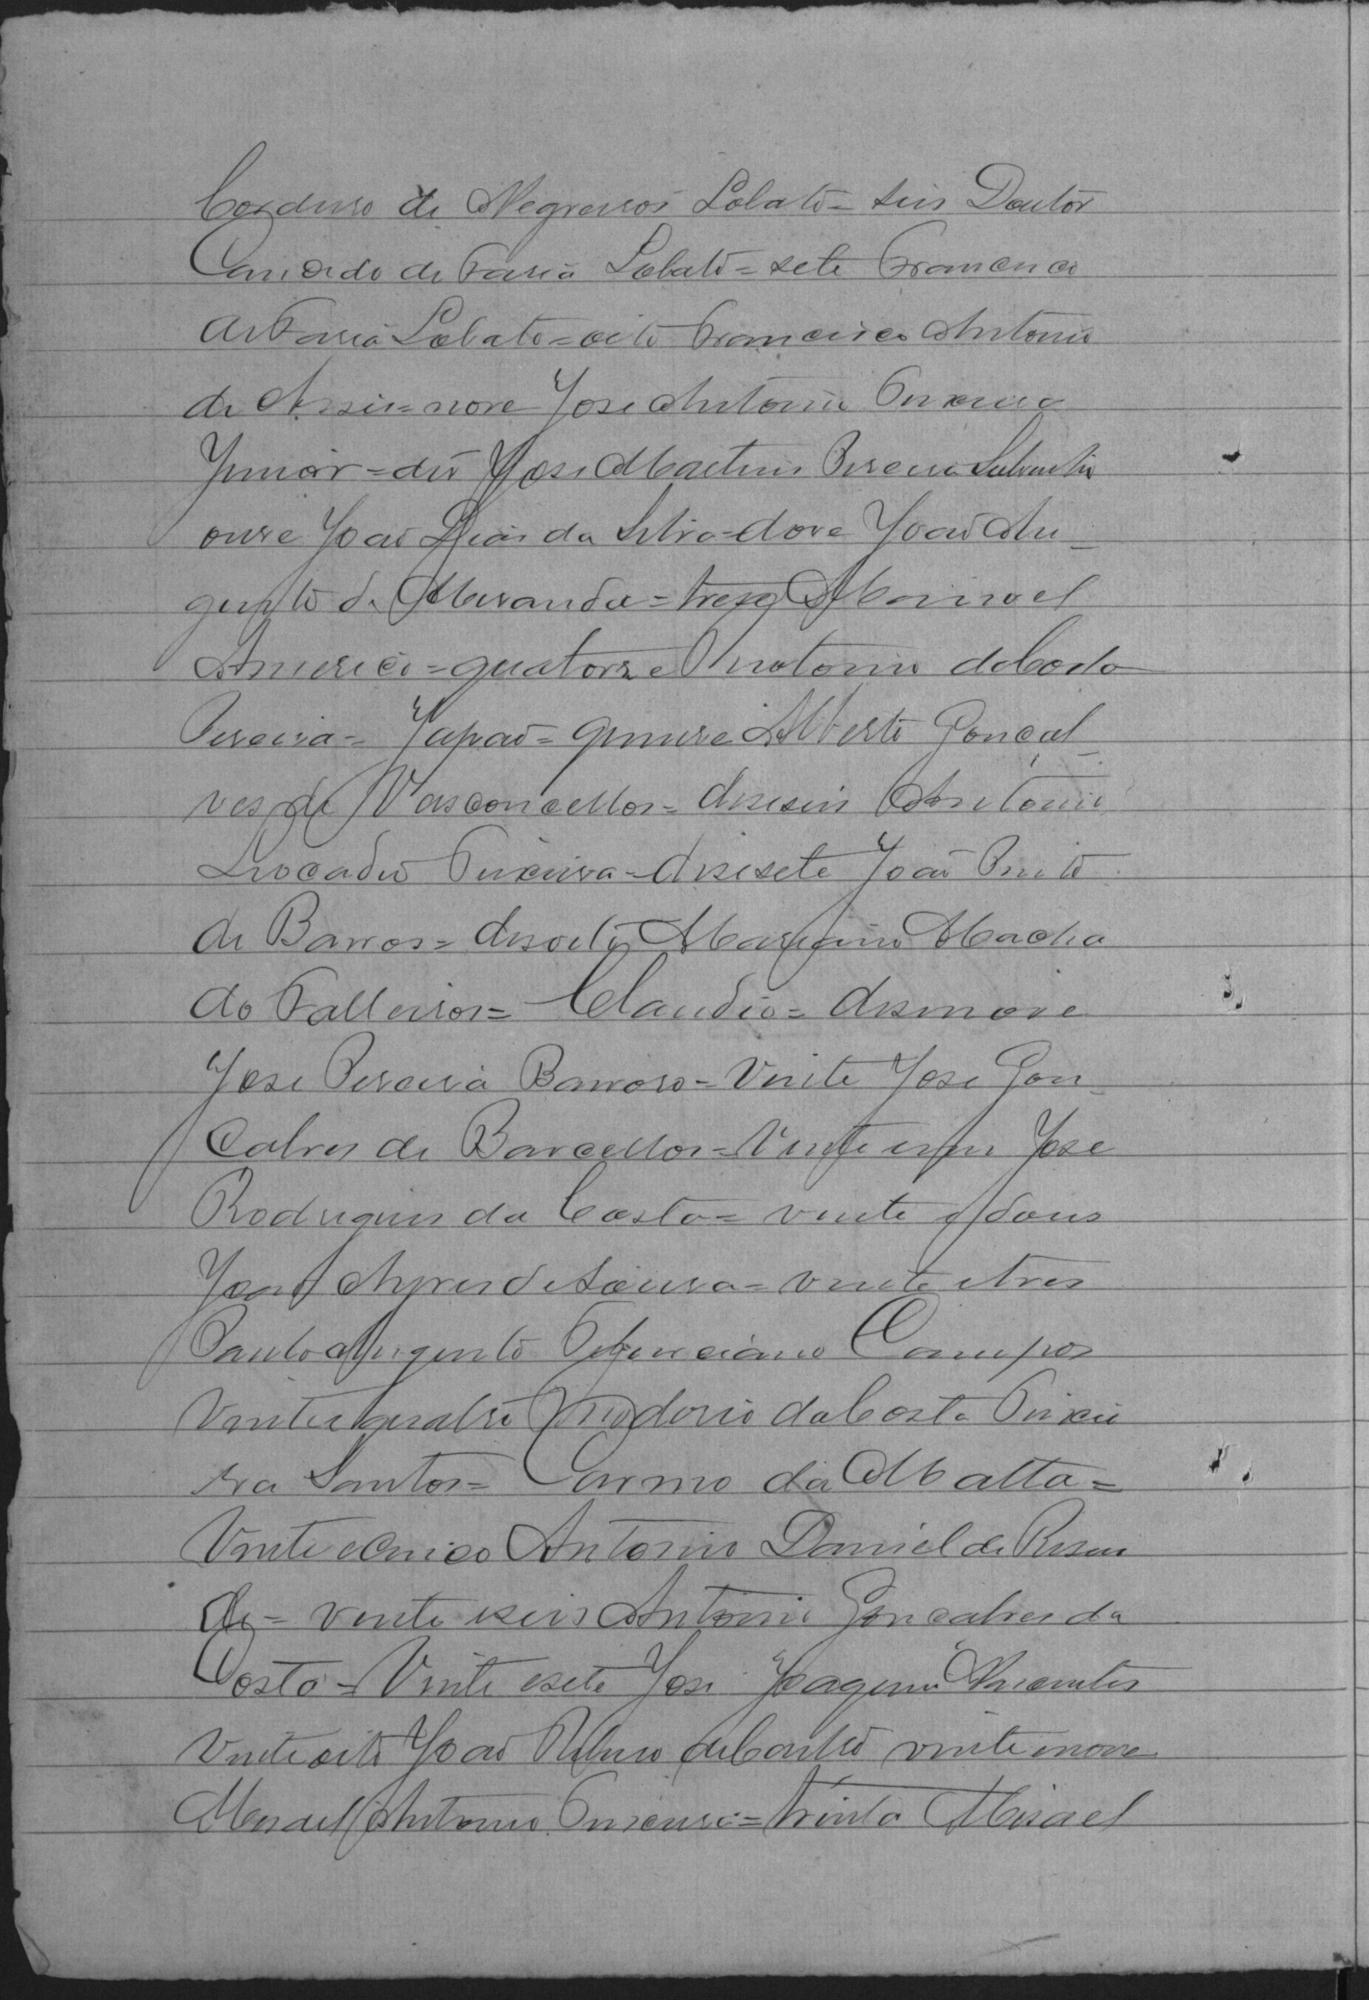 Cardoso de Negreiros Lobato = seis Doutor
Candido de Faria Lobato = sete Francisco
de Faria Lobato = oito Francisco Antonio
de Assis = nove José Antonio Teixeira
Junior = dez José Martins Pereira
onze João Dias da Silva = doze João Au-
gusto de Miranda = treze Manoel
Americo = quatorze Antonio da Costa
Pereira = Japaõ = quinze Alberto Gonçal-
ves de Vasconcellos = diseseis Antonio
Leocadio Teixeira = disesete João Pinto
de Barros = desoito Mariano Macha
do Falleiros = Claudio = desenove
José Pereira Barroso = Vinte José Gon-
çalves de Barcellos = Vinte e um José
Rodrigues da Costa = vinte e dous
João Ayres de Sousa = vinte e tres
Paulo Augusto Feliciano Campos
Vinte e quatro Theodorio da Costa Teixei
ra Santos = Carmo da Matta =
Vinte e cinco Antonio Daniel de Resen
de = vinte e seis Antonio Gonçalves da
Costa = Vinte e sete José Joaquim
Vinte oito João Ribeiro de Castro vinte nove
Misael Antonio Teixeira = trinta Misael